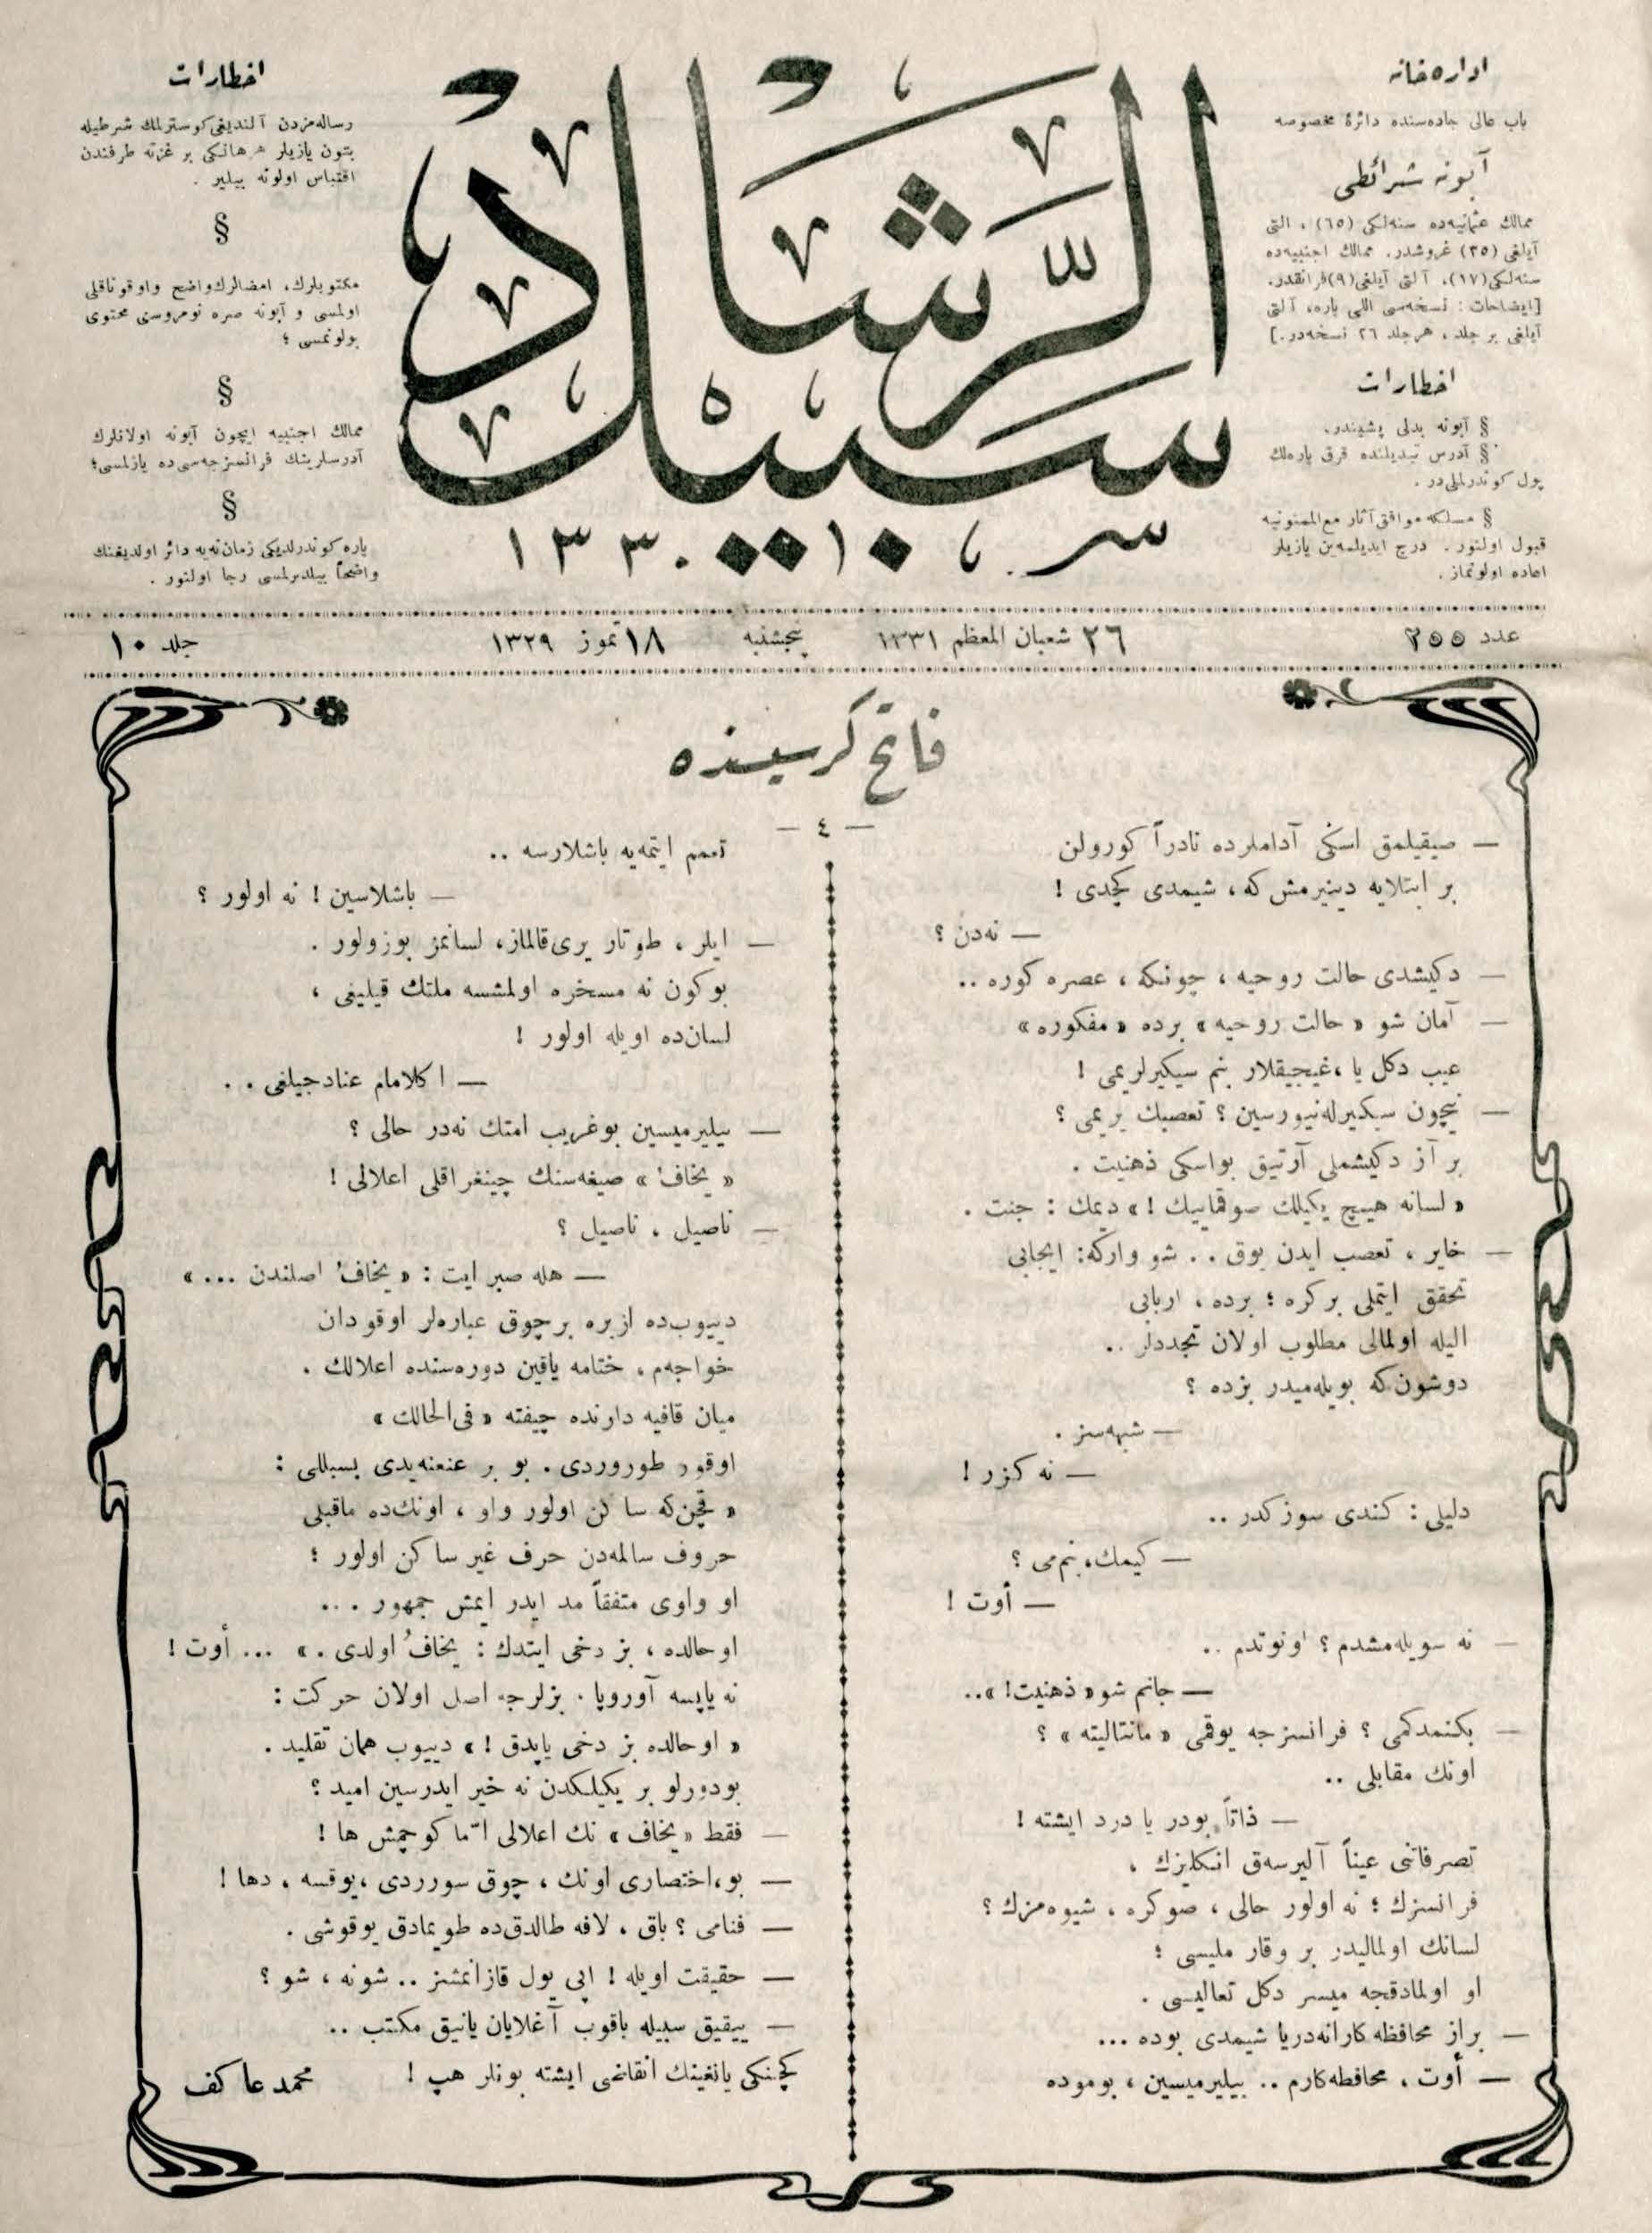 اداره‌خانه
باب عالی جاده‌سنده دائرهٔ مخصوصه
آبونه شرائطی
ممالك عثمانیه‌ده سنه‌لكی (٦٥) ، التی
آیلغی (٣٥) غروشدر. ممالك اجنبیه‌ده
سنه‌لكی (١٧)، آلتی آیلغی (٩) فرانقدر.
[ایضاحات : نسخه‌سی اللی پاره، آلتی
آیلغی بر جلد ، هر جلد ٢٦ نسخه‌در.]
اخطارات
§ آبونه بدلی پشیندر.
§ آدرس تبدیلنده قرق پاره‌لك
پول كوندرلملی‌در .
§ مسلكه موافق آثار مع‌الممنونیه
قبول اولنور . درج ایدیلمه‌ین یازیلر
اعاده اولونماز .
سبیل الرّشاد
سر . ١٠ ١٣٣٠
اخطارات
رساله‌مزدن آلندیغی كوسترلمك شرطیله
بتون یازیلر هر هانكی بر غزته طرفندن
اقتباس اولونه بیلیر .
§
مكتوبلرك، امضالرك واضح و اوقوناقلی
اولمسی و آبونه صره نومروسی محتوی
بولونمسی ؛
§
ممالك اجنبیه ایچون آبونه اولانلرك
آدرسلرینك فرانسزجه‌سی‌ده یازلمسی؛
§
پاره كوندرلدیكی زمان نه‌یه دائر اولدیغنك
واضحاً بیلدیرلمسی رجا اولنور .
عدد ٢٥٥
٢٦ شعبان المعظم ١٣٣١
پنجشنبه
١٨ تموز ١٣٢٩
جلد ١٠
فاتح كرسیسنده
— ٤ —
— صیقیلمق اسكی آداملرده نادراً كورولن
بر ابتلایه دینیرمش كه، شیمدی كچدی !
— نه‌دن ؟
— دكیشدی حالت روحیه ، چونكه ، عصره كوره ..
— آمان شو « حالت روحیه » برده « مفكوره »
عیب دكل یا ، غیجیقلار بنم سیكیرلریمی !
— نیچون سیكیرله‌نیورسین ؟ تعصبك یریمی ؟
بر آز دكیشملی آرتیق بو اسكی ذهنیت .
« لسانه هیچ یكیلك صوقمایك ! » دیمك : جنت .
— خایر ، تعصب ایدن یوق .. شو واركه : ایجابی
تحقق ایتملی بر كره ؛ برده ، اربابی
الیله اولمالی مطلوب اولان تجددلر ..
دوشون كه بویله‌میدر بزده ؟
— شبهه‌سز .
— نه كزر !
دلیلی : كندی سوزكدر ..
— كیمك، بنم‌می ؟
— أوت !
— نه سویله‌مشدم ؟ اونوتدم ..
— جانم شو « ذهنیت! »..
— بكنمدكمی ؟ فرانسزجه یوقمی « مانتالیته » ؟
اونك مقابلی ..
— ذاتاً بودر یا درد ایشته !
تصرفاتنی عیناً آلیرسه‌ق انكلیزك ،
فرانسزك ؛ نه اولور حالی ، صوكره ، شیوه‌مزك ؟
لسانك اولمالیدر بر وقار ملیسی ؛
او اولمادقجه میسر دكل تعالیسی .
— براز محافظه‌كارانه‌در یا شیمدی بوده ...
— أوت ، محافظه‌كارم .. بیلیرمیسین ، بو موده
تعمم ایتمه‌یه باشلارسه ..
— باشلاسین ! نه اولور ؟
— ایلر ، طوتار یری قالماز، لسانمز بوزولور .
بوكون نه مسخره اولمشسه ملتك قیلیغی ،
لسان‌ده اویله اولور !
— اكلامام عنادجیلغی ..
— بیلیرمیسین بو غریب امتك نه‌در حالی ؟
« یخاف » صیغه‌سنك چینغراقلی اعلالی !
— ناصیل ، ناصیل ؟
— هله صبر ایت : « یخافُ اصلندن ... »
دییوب‌ده ازبره بر چوق عباره‌لر اوقودان
خواجه‌م، ختامه یاقین دوره‌سنده اعلالك .
میان قافیه دارنده چیفته « فی‌الحالك »
اوقور طوروردی . بو بر عنعنه‌یدی بسبللی :
« قچن‌كه ساكن اولور واو ، اونك‌ده ماقبلی
حروف سالمه‌دن حرف غیر ساكن اولور ؛
او واوی متفقاً مد ایدر ایمش جمهور ...
او حالده ، بز دخی ایتدك : یخافُ اولدی . » ... أوت !
نه یاپسه آوروپا . بزلرجه اصل اولان حركت :
« او حالده بز دخی یاپدق ! » دییوب همان تقلید .
بودورلو بر یكیلكدن نه خیر ایدرسین امید ؟
— فقط « یخاف » نك اعلالی امّا كوچمش ها !
— بو، اختصاری اونك ، چوق سورردی ، یوقسه ، دها !
— فنامی ؟ باق ، لافه طالدق‌ده طویمادق یوقوشی .
— حقیقت اویله ! ایی یول قازانمشز .. شونه ، شو ؟
— ییقیق سبیله باقوب آغلایان یانیق مكتب ..
كچنكی یانغینك انقاضی ایشته بونلر هپ !
محمد عاكف